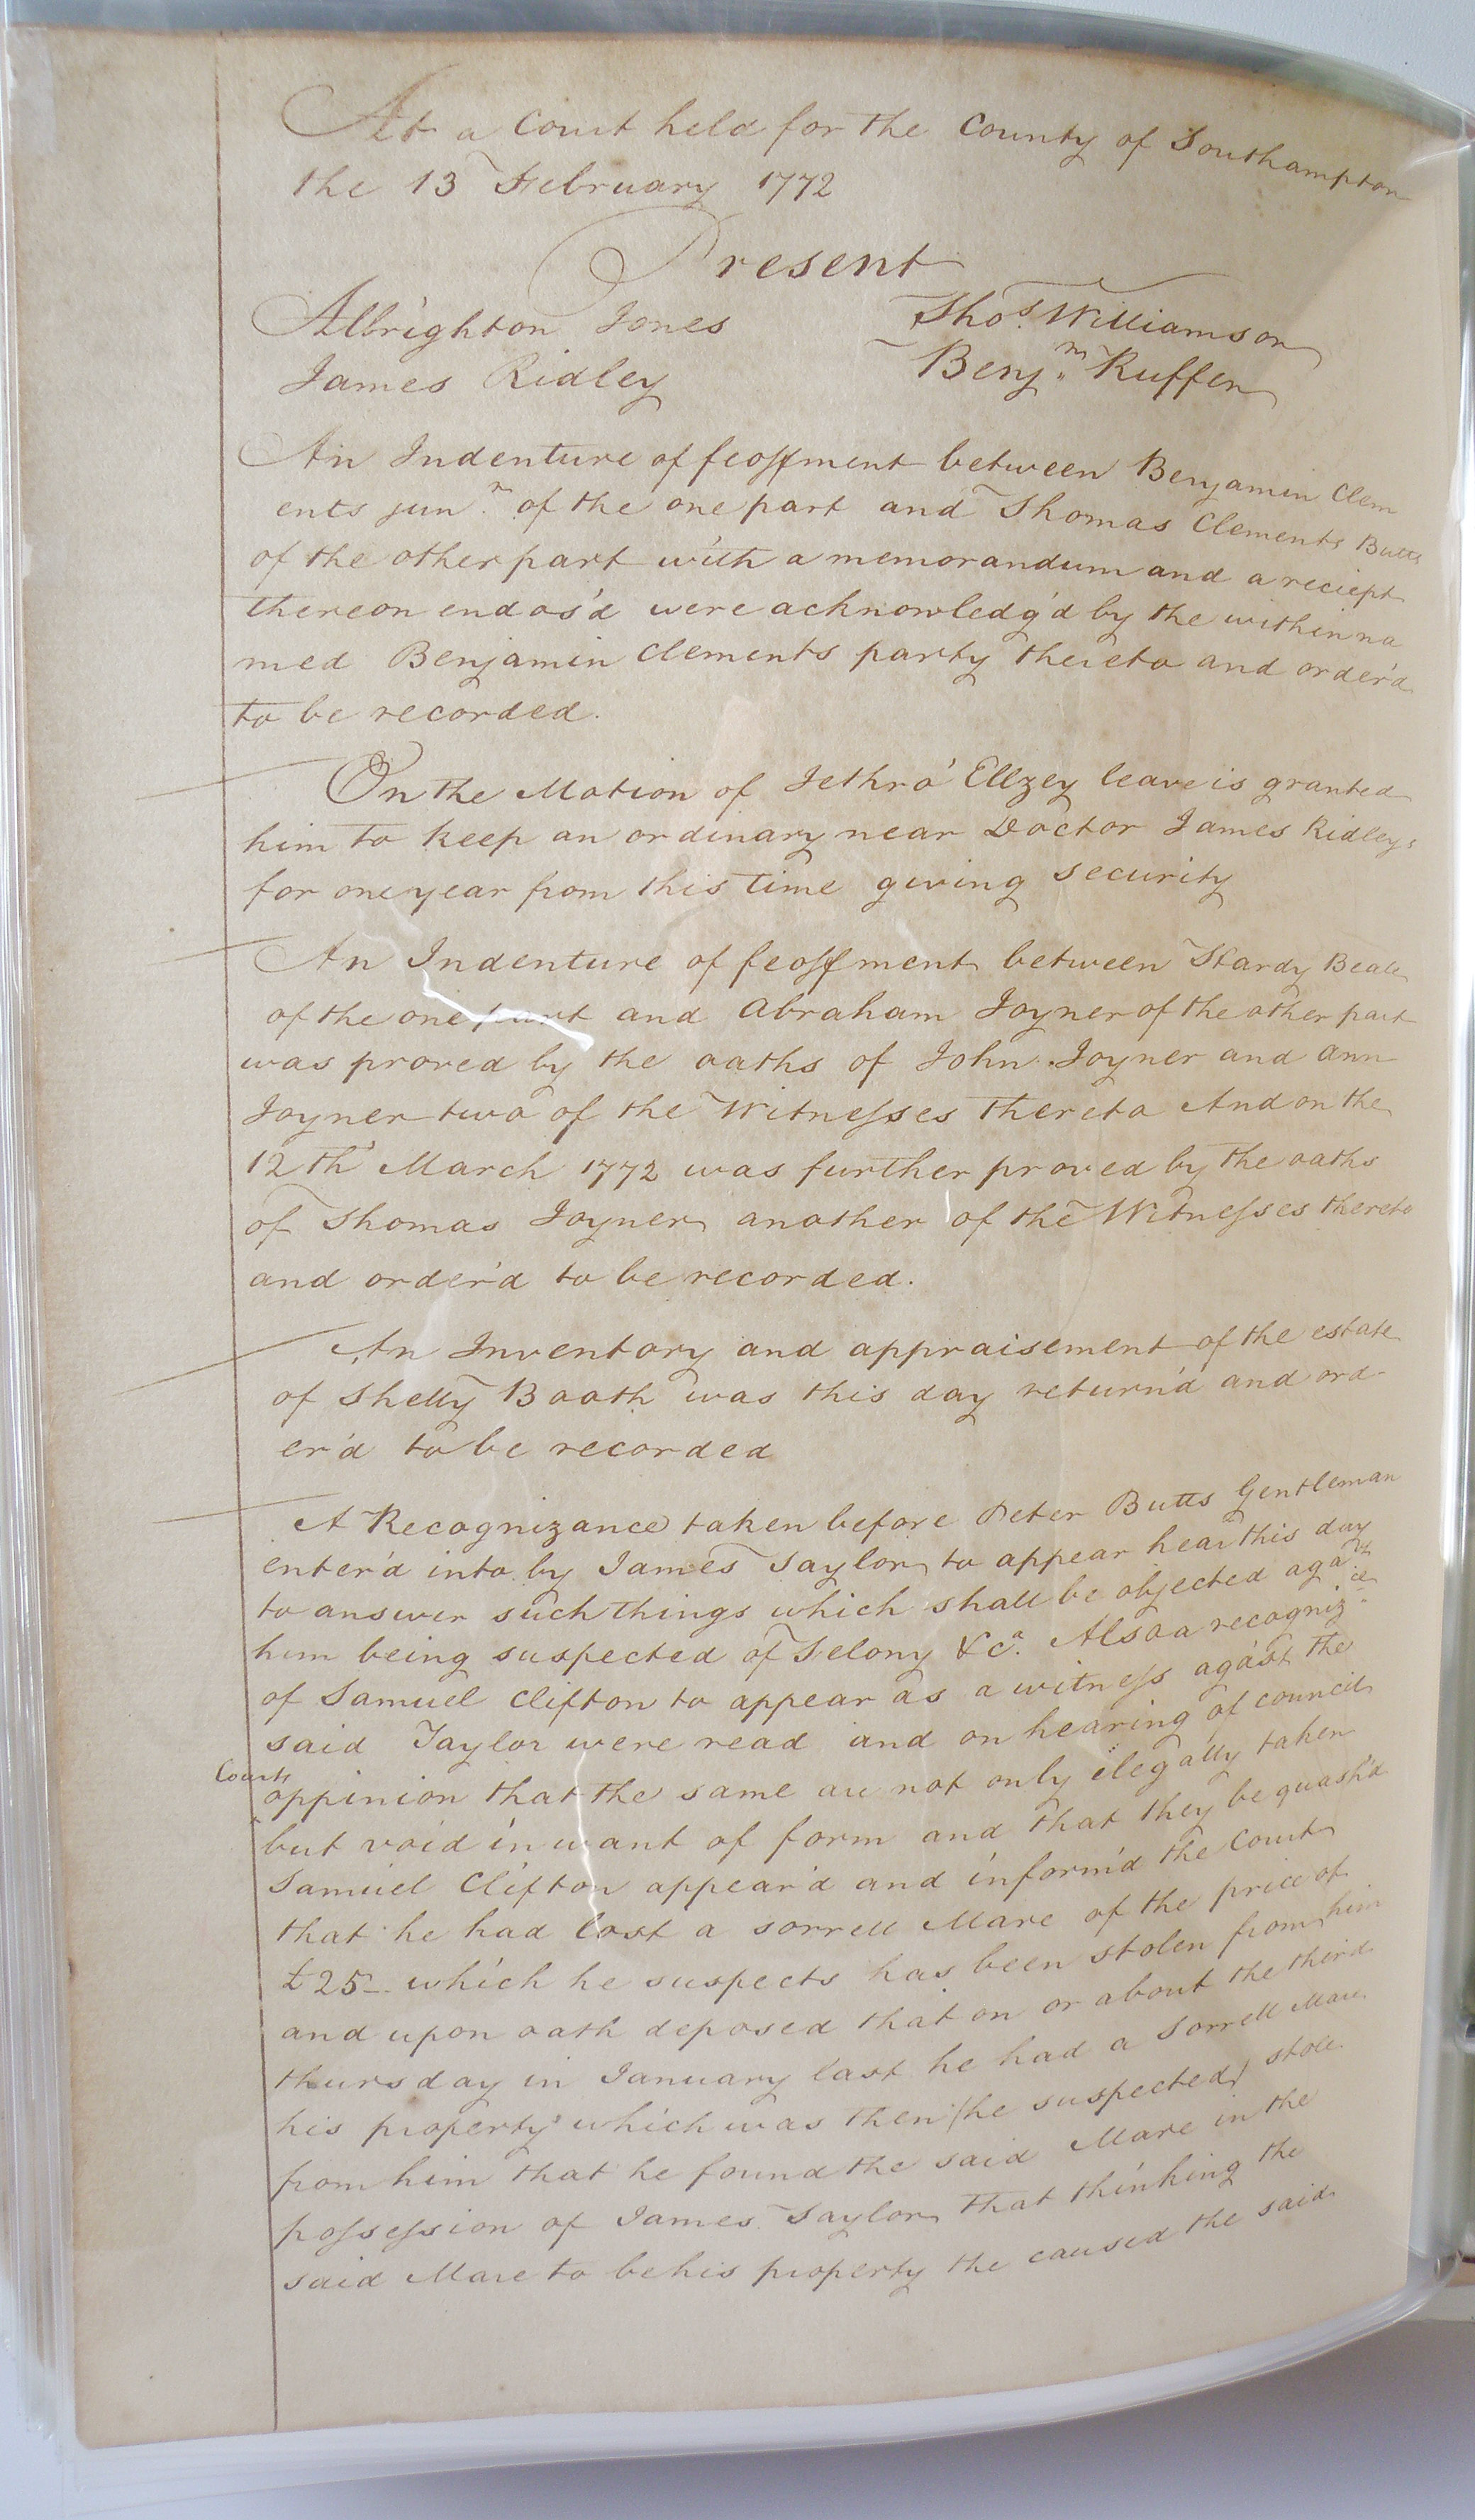 At a Court held for the County of Southampton
the 13 February 1772
Present
Albrighton Jones
Thos. Williamson
James Ridley
Benjm. Ruffin
An Indenture of feoffment between Benjamin Clem
ents junr. of the one part and Thomas Clements Butts
of the other part with a memorandum and a reciept
thereon endos'd were acknowledg'd by the within na
med Benjamin Clements party thereto and order'd
to be recorded.
On the Motion of Jethro Ellzey leave is granted
him to keep an ordinary near Doctor James Ridleys
for one year from this time giving security
An Indenture of feoffment between Hardy Beale
of the one part and Abraham Joyner of the other part
was proved by the oaths of John Joyner and Ann
Joyner two of the Witnesses thereto And on the
12th March 1772 was further proved by the oaths
of Thomas Joyner another of the Witnesses thereto
and order'd to be recorded.
An Inventory and appraisement of the estate
of Shelly Booth was this day return'd and ord
er'd to be recorded
A Recognizance taken before Peter Butts Gentleman
enter'd into by James Taylor to appear hear this day
to answer such things which shall be objected agast
him being suspected of Felony &ca. Also a recognizce
of Samuel Clifton to appear as a witness agast the
said Taylor were read and on hearing of council
Courts oppinion that the same are not only ilegally taken
but void in want of form and that they be quash'd
Samuel Clifton appear'd and inform'd the Court
that he had lost a sorrell Mare of the price of
£25 - which he suspects has been stolen from him
and upon oath deposed that on or about the third
thursday in January last he had a Sorrell Mare
his property which was then (he suspected) stole
from him that he found the said Mare in the
possession of James Taylor that thinking the
said Mare to be his property the caused the said